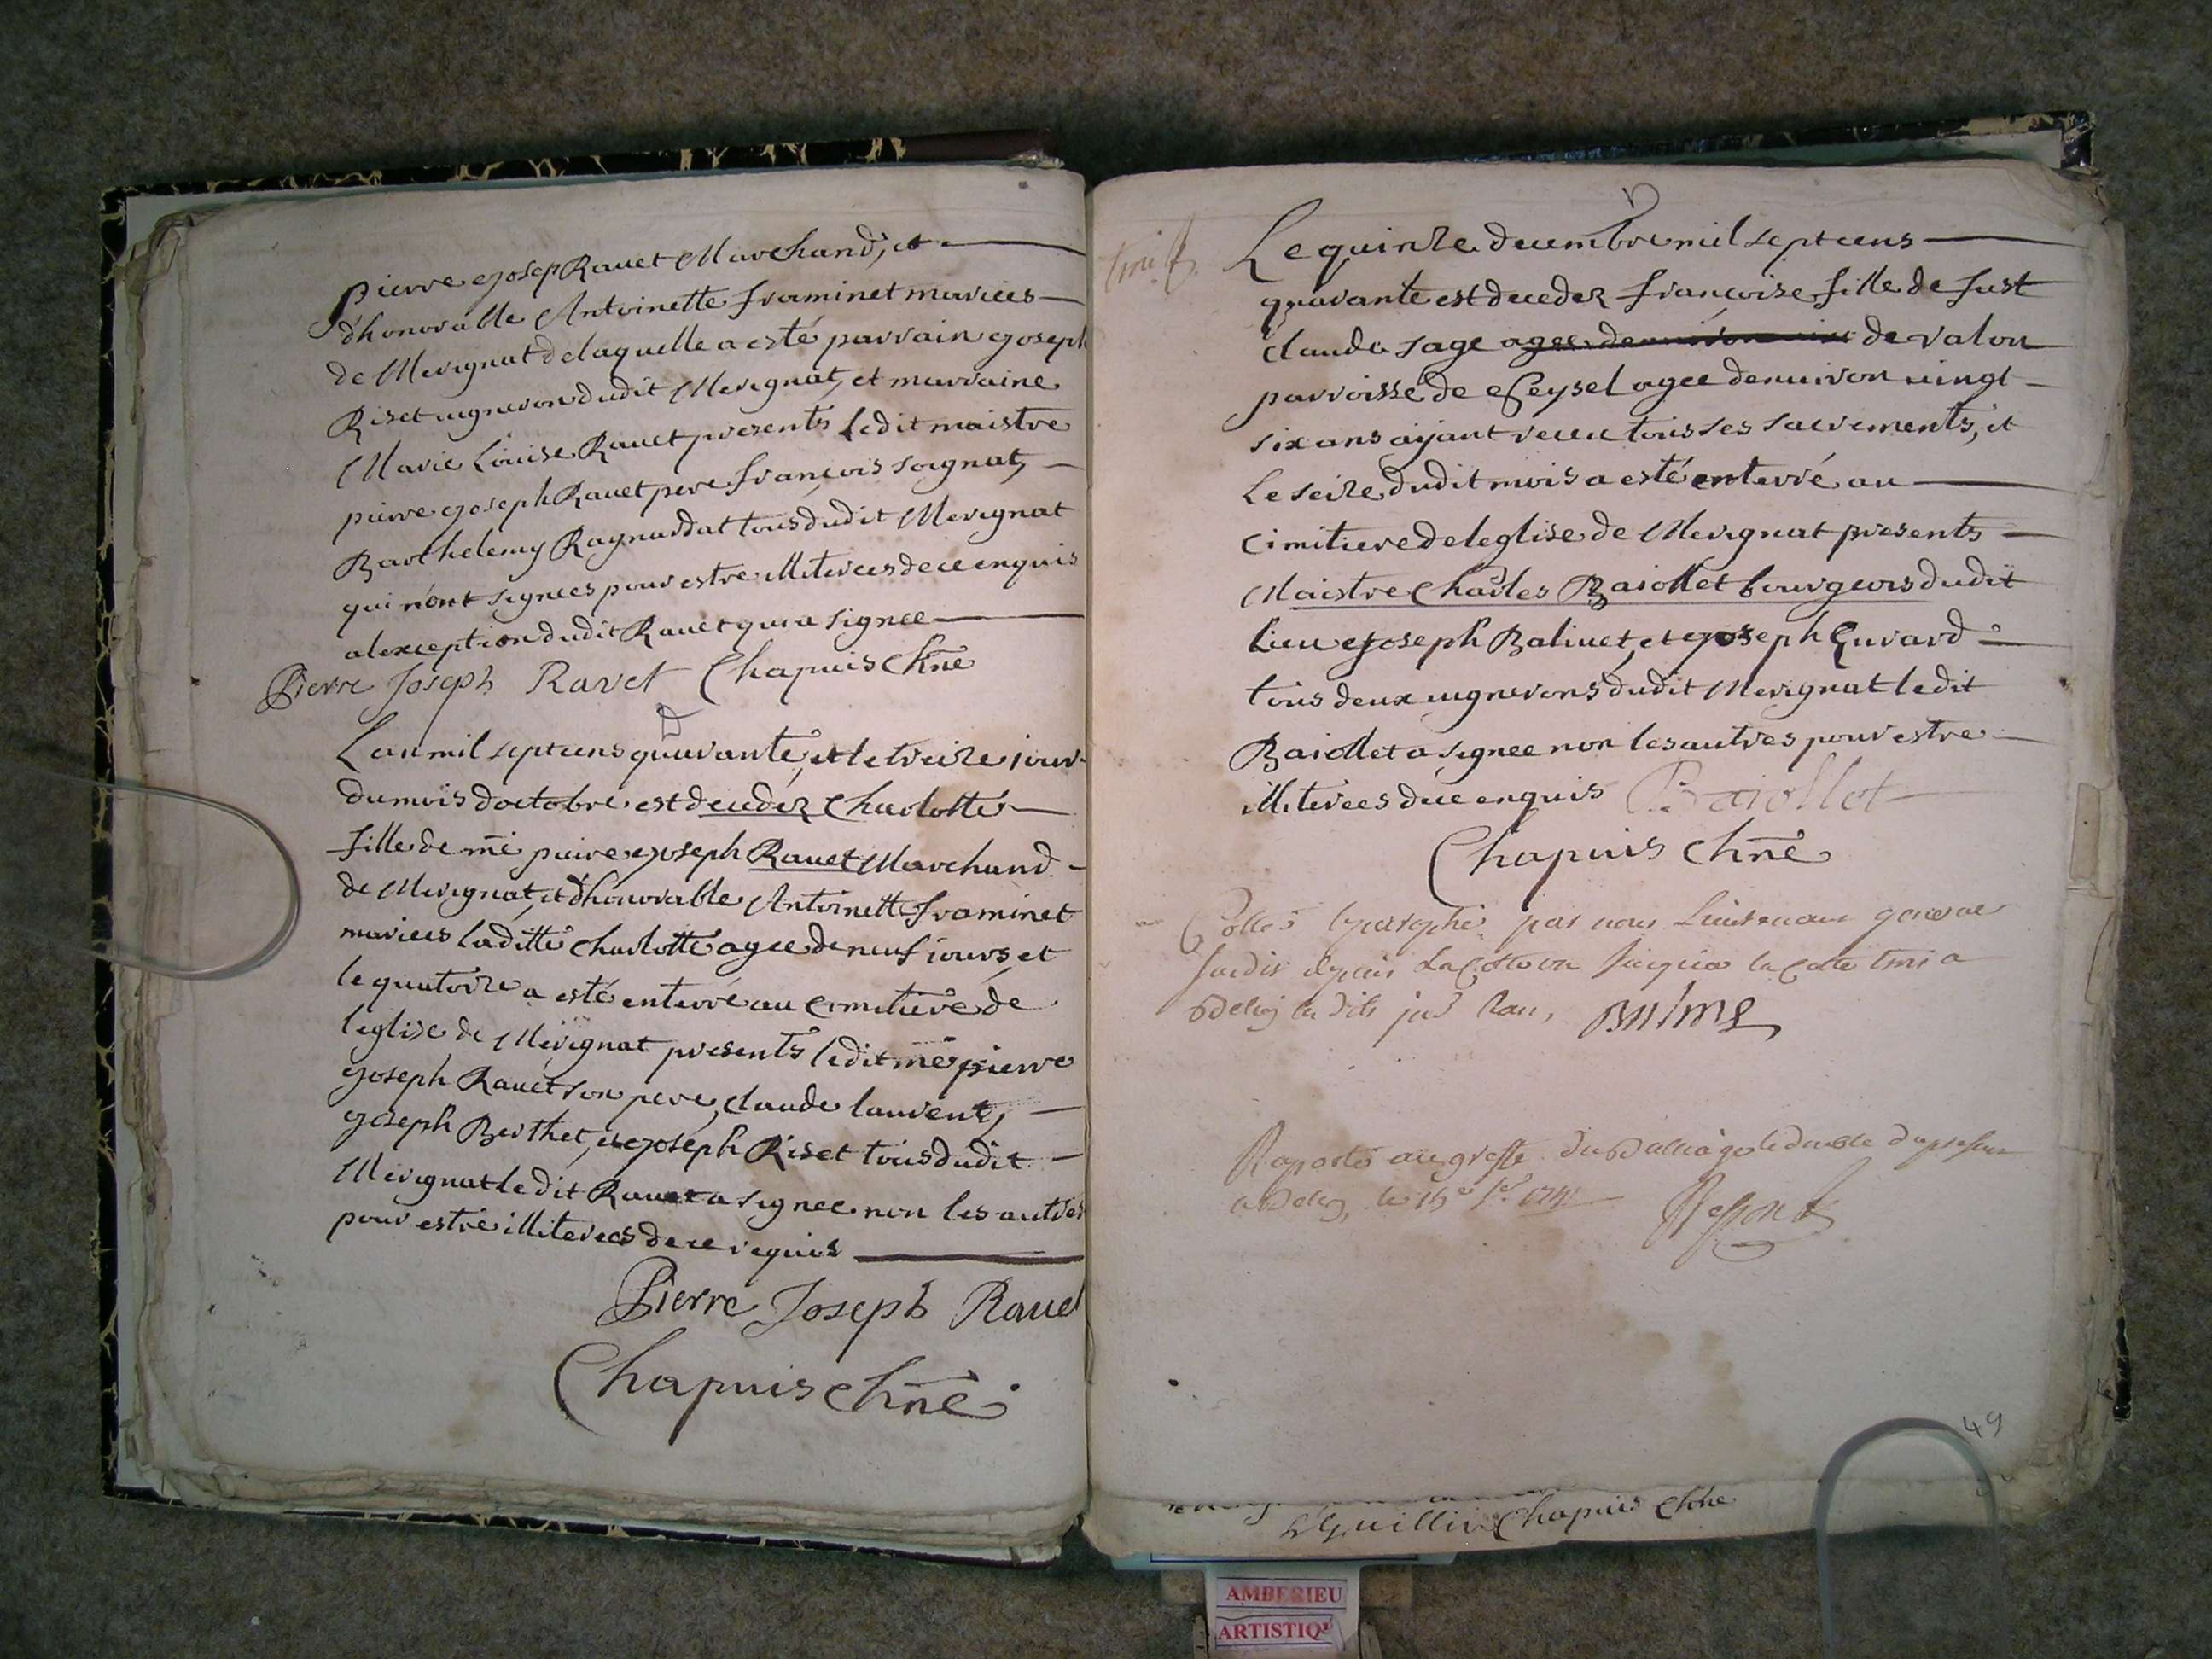 pierre ejosep Rauet Marchand, et
d'honorable Antoinette framinet mariees
de Merignat de laquelle a esté parrain ejoseph
Riset uigneron dudit Merignat, et marraine
Marie Louise Rauet presents ledit maistre
pierre ejoseph Rauet pere françois soignat,
Barthelemy Raynardat tous dudit Merignat
qui n'ont signees pour estre illiterees de ce enquis
a lexception dudit Rauet qui a signee
Pierre Joseph Ravet Chapuis Chne
D
L an mil sept cens quarante, et le treize iour
du mois doctobre est decedez Charlotte
fille de me pierre ejoseph Rauet Marchand
de Merignat, et d'honorable Antoinette framinet
mariees laditte charlotte agee de neuf iours, et
le quatorze a esté enterré au cimitiere de
leglise de Merignat presents ledit me pierre
ejoseph Rauet son pere, claude laurent,
ejoseph Berthet, et ejoseph Riset tous dudit
Merignat ledit Rauet a signee non les autres
pour estre illiterees de ce requis
Pierre Joseph Rauet
Chapuis Chne
D
Le quinze decembre mil sept cens
quarante est decedez françoise fille de Just
claude sage agee denuiron de valon
parroisse de Seysel agee denuiron uingt
six ans aÿant receu tous ses sacrements, et
Le seize dudit mois a esté enterré au
cimitiere de leglise de Merignat presents
Maistre Charles Baiollet bourgeois dudit
Lieu ejoseph Balliuet, et ejoseph Euvard
tous deux uignerons dudit Merignat ledit
Baiollet a signee non les autres pour estre
illiterees de ce enquis Baiollet
Chapuis Chne
Cotté paraphé par nous Lieutenant general
susdit depuis la Cotte un jusqua la Cotte
Raporté au greffe du Balliage le double du present
a Belley, le
49
Guillin Chapuis Chne
AMBERIEU
ARTISTIQ